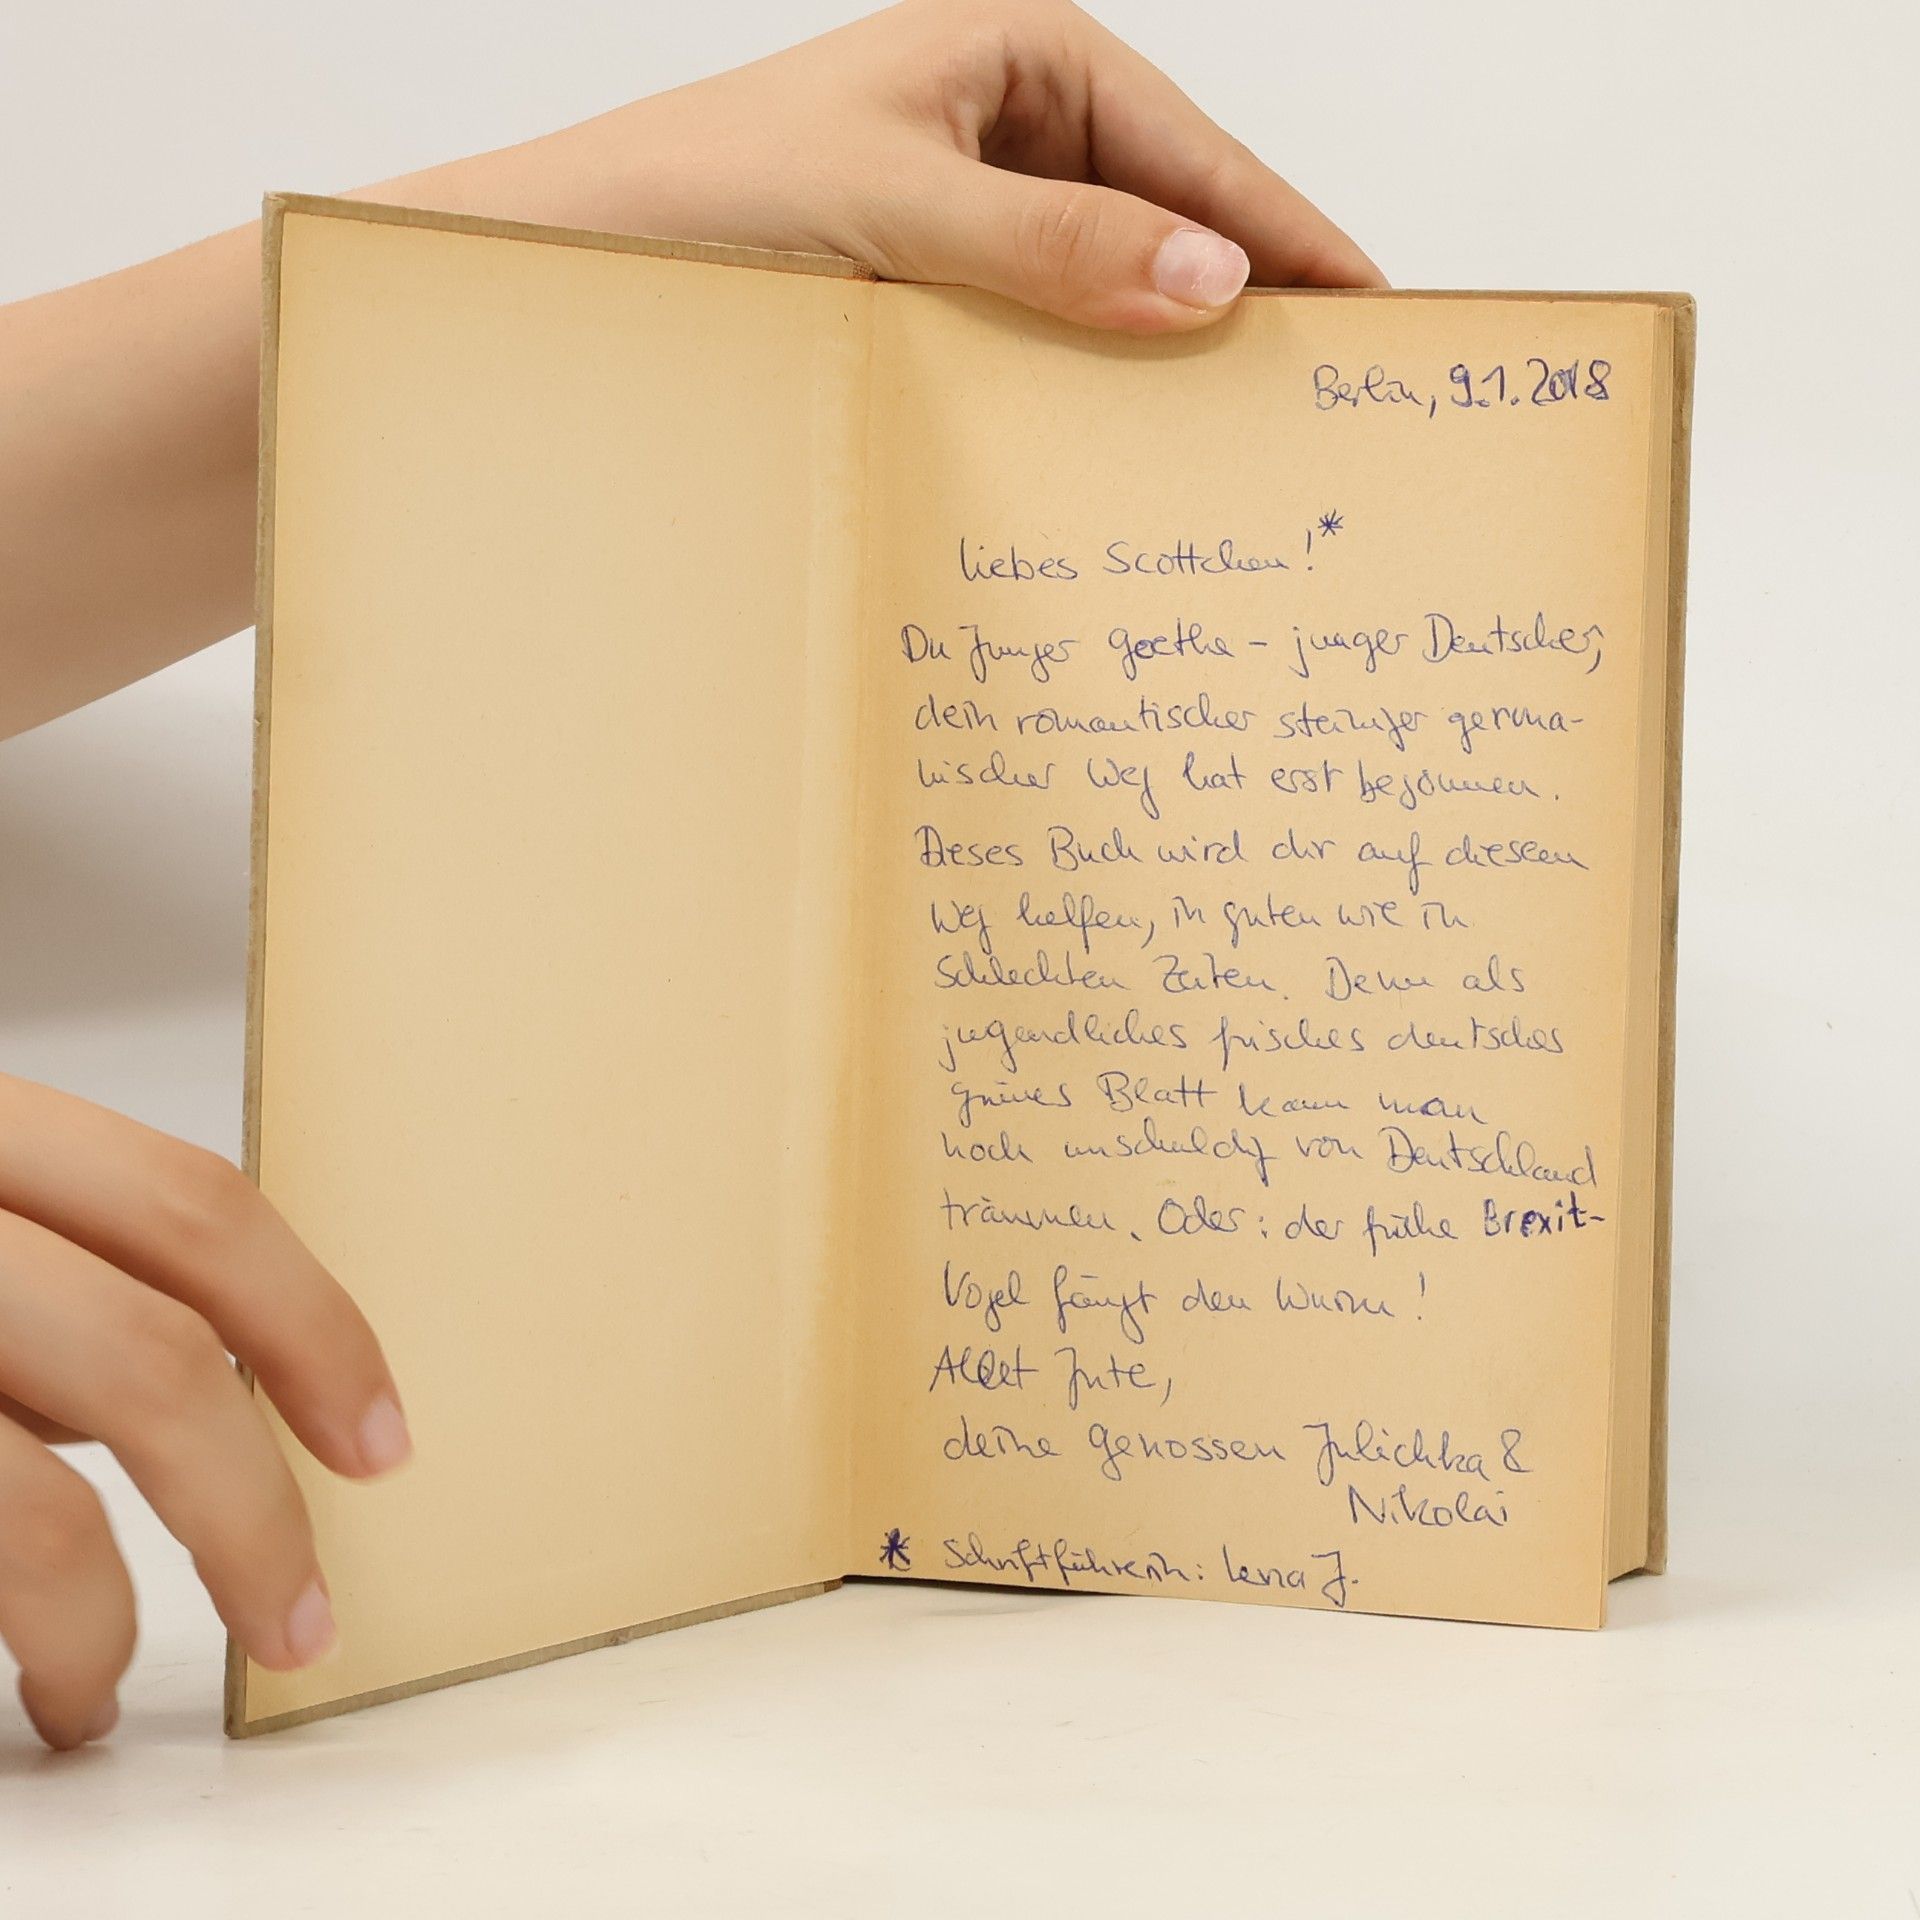 Berlin, 9.1.2018
liebes Scottchen!*
Du Junger Goethe - junger Deutscher,
dein romantischer steiniger germa-
nischer Weg hat erst begonnen.
Dieses Buch wird dir auf diesem
Weg helfen, in guten wie in
schlechten Zeiten. Denn als
jugendliches frisches deutsches
grünes Blatt kann man
noch unschuldig von Deutschland
träumen. Oder: der frühe Brexit-
Vogel fängt den Wurm!
Allet Jute,
deine Genossen Julichka &
Nikolai
* Schriftführerin: Lena J.